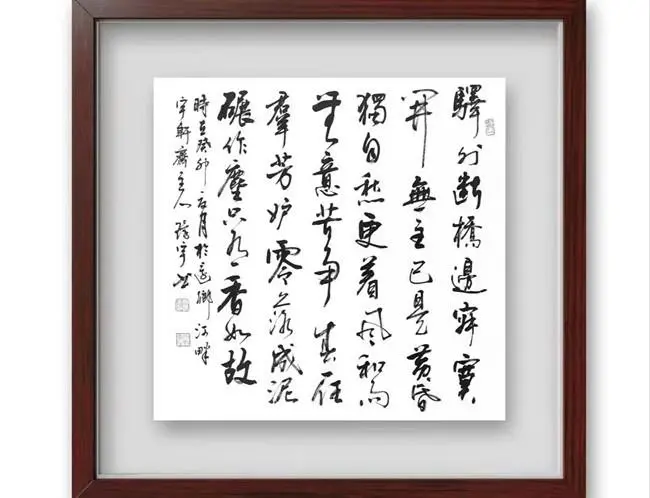 驛外斷橋邊寂寞
開無主已是黃昏
獨自愁更着風和雨
无意苦爭春一任
羣芳妒零落成泥
碾作塵只有香如故
時在癸卯月於鄉河畔
宇軒齋主人張宇书